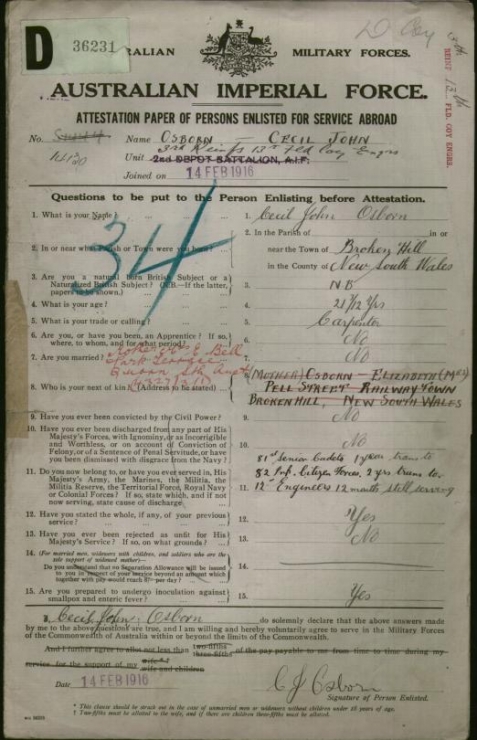 D 36231
AUSTRALIAN MILITARY FORCES.
D Coy
AUSTRALIAN IMPERIAL FORCE.
ATTESTATION PAPER OF PERSONS ENLISTED FOR SERVICE ABROAD
No. Name OSBORN — CECIL JOHN
3rd Reinfs 13th Fld Coy Engrs
Unit 2nd DEPOT BATTALION, A.I.F.
Joined on 14 FEB 1916
13th FLD. COY ENGRS.
Questions to be put to the Person Enlisting before Attestation.
34
1. What is your Name? 1. Cecil John Osborn
2. In or near what Parish or Town were you born? 2. In the Parish of in or
near the Town of Broken Hill
in the County of New South Wales
3. Are you a natural born British Subject or a
Naturalized British Subject? (N.B.—If the latter,
papers to be shown.) 3. NB
4. What is your age? 4. 21 /12 yrs
5. What is your trade or calling? 5. Carpenter
6. Are you, or have you been, an Apprentice? If so,
where, to whom, and for what period? 6. No
7. Are you married? 7. No
8. Who is your next of kin? (Address to be stated) 8. (MOTHER) OSBORN — ELIZABETH (MRS)
PELL STREET RAILWAY TOWN
BROKEN HILL, NEW SOUTH WALES
9. Have you ever been convicted by the Civil Power? 9. No
10. Have you ever been discharged from any part of His
Majesty's Forces, with Ignominy, or as Incorrigible
and Worthless, or on account of Conviction of
Felony, or of a Sentence of Penal Servitude, or have
you been dismissed with Disgrace from the Navy? 10. No
11. Do you now belong to, or have you ever served in, His
Majesty's Army, the Marines, the Militia, the
Militia Reserve, the Territorial Force, Royal Navy
or Colonial Forces? If so, state which, and if not
now serving, state cause of discharge 11. 81st Senior Cadets 1 year trans to
82 Inf. Citizen Forces. 2 yrs trans to
12th Engineers 12 months still serving
12. Have you stated the whole, if any, of your previous
service? 12. Yes
13. Have you ever been rejected as unfit for His
Majesty's Service? If so, on what grounds? 13. No
14. (For married men, widowers with children, and soldiers who are the
sole support of widowed mother)—
Do you understand that no Separation Allowance will be issued
to you in respect of your service beyond an amount which
together with pay would reach 8/- per day? 14.
15. Are you prepared to undergo inoculation against
smallpox and enteric fever? 15. Yes
I, Cecil John Osborn do solemnly declare that the above answers made
by me to the above questions are true, and I am willing and hereby voluntarily agree to serve in the Military Forces
of the Commonwealth of Australia within or beyond the limits of the Commonwealth.
And I further agree to allot not less than two-fifths three-fifths of the pay payable to me from time to time during my
service for the support of my wife wife and children
Date 14 FEB 1916
C J Osborn
Signature of Person Enlisted.
* This clause should be struck out in the case of unmarried men or widowers without children under 18 years of age.
† Two-fifths must be allotted to the wife, and if there are children three-fifths must be allotted.